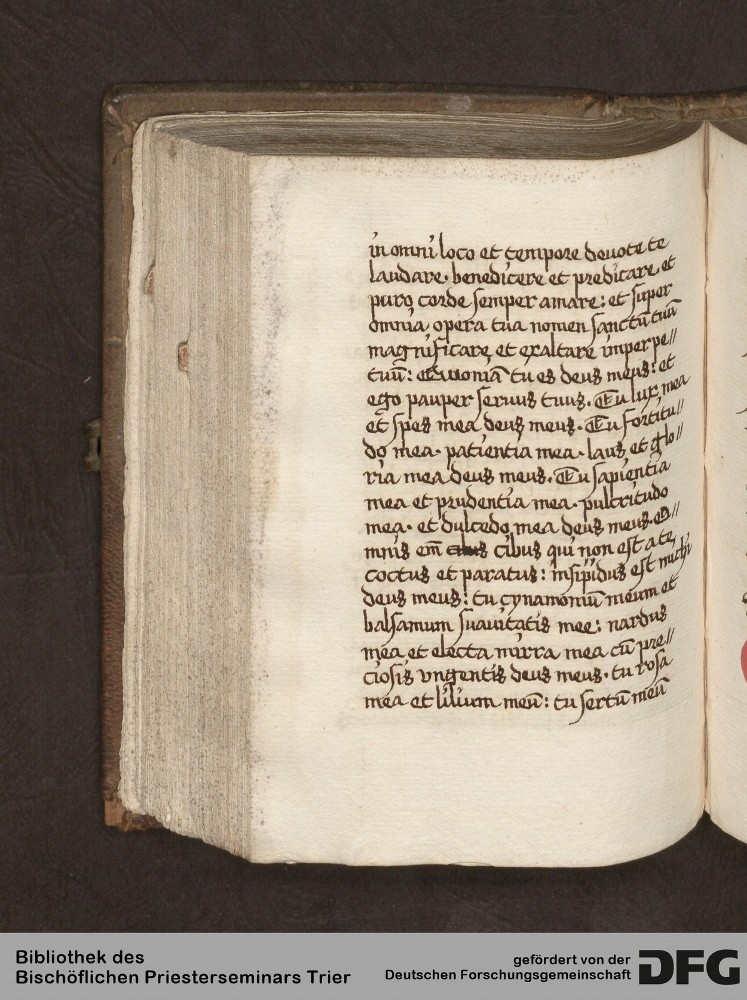 in omni loco et tempore deuote te
laudare· benedicere et predicare· et
puro corde semper amare: et super
omnia opera tua nomen sanctū tuū
magnificare et exaltare inperpe//
tuū: Quoniā tu es deus meus: et
ego pauper seruus tuus· Tu lux mea
et spes mea deus meus· Tu fortitu//
do mea· patientia mea· laus et glo//
ria mea deus meus· Tu sapientia
mea et prudentia mea· pulcritudo
mea· et dulcedo mea deus meus· O//
mnis em̄ cibus qui non est a te
coctus et paratus: insipidus est michi
deus meus: tu cynamoniū meum et
balsamum suauitatis mee: nardus
mea et electa mirra mea cū pre//
ciosis vngentis deus meus· tu rosa
mea et lilium meū: tu sertū meū
Bibliothek des
Bischöflichen Priesterseminars Trier
gefördert von der
Deutschen Forschungsgemeinschaft
DFG